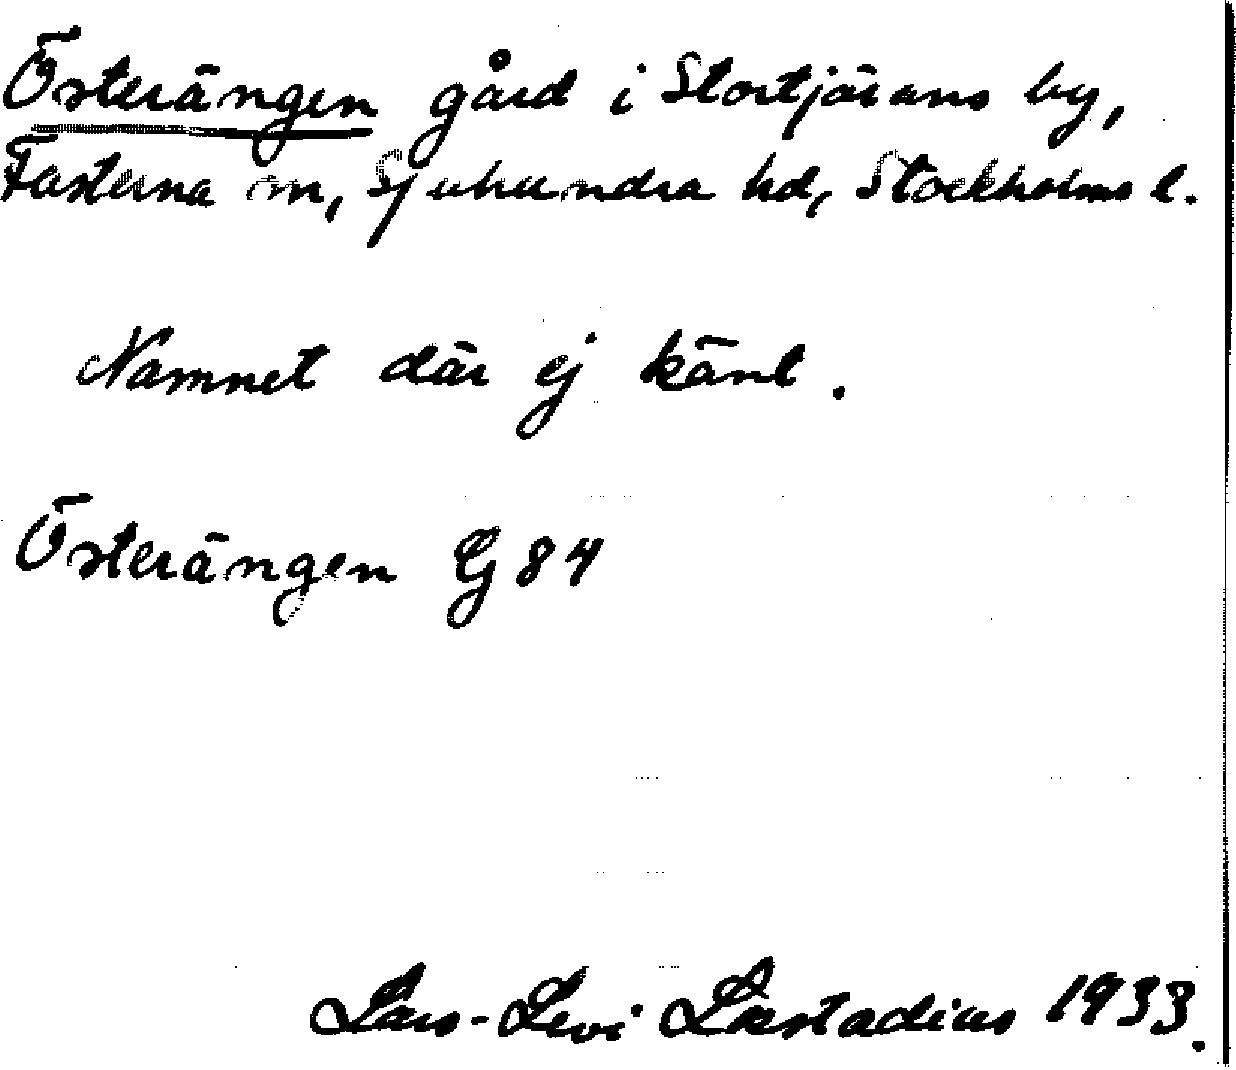 Österängen gård i Stortjärans by,
Fasterna sn, Sjuhundra hd, Stockholms l.
Namnet där ej känt.
Österängen G 84
Lars-Levi Læstadius 1933.